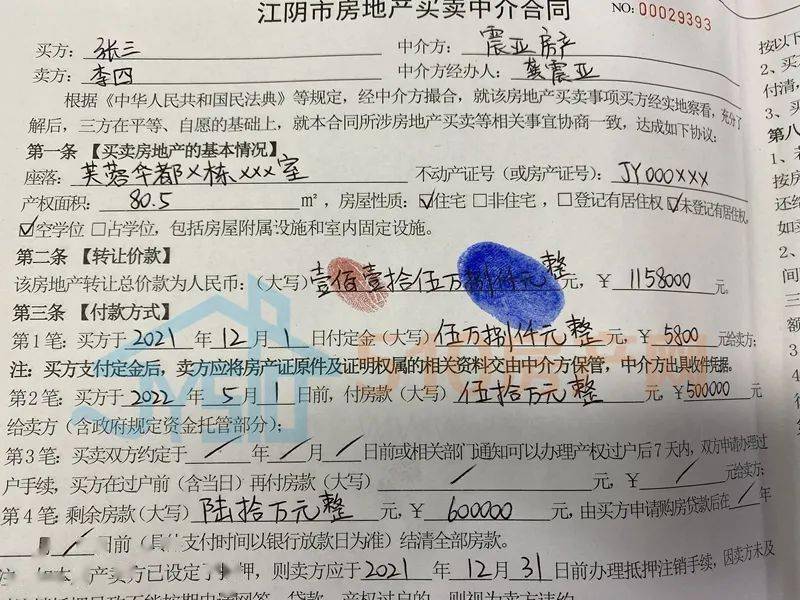 江阴市房地产买卖中介合同 NO:00029393
买方：张三 中介方：震亚房产
卖方：李四 中介方经办人：龚震亚
根据《中华人民共和国民法典》等规定，经中介方撮合，就该房地产买卖事项买方经实地察看，充分了
解后，三方在平等、自愿的基础上，就本合同所涉房地产买卖等相关事宜协商一致，达成如下协议：
第一条 【买卖房地产的基本情况】
座落：芙蓉华都×栋×××室 不动产证号（或房产证号）：JY000×××
产权面积：80.5 ㎡，房屋性质：☑住宅□非住宅，□登记有居住权☑未登记有居住权，
☑空学位□占学位，包括房屋附属设施和室内固定设施。
第二条 【转让价款】
该房地产转让总价款为人民币：（大写）壹佰壹拾伍万捌仟元整元，¥ 1158000 元。
第三条 【付款方式】
第1笔：买方于2021年12月1日付定金（大写）伍万捌仟元整元，¥ 5800 给卖方；
注：买方支付定金后，卖方应将房产证原件及证明权属的相关资料交由中介方保管，中介方出具收件凭据。
第2笔：买方于2022年5月1日前，付房款（大写）伍拾万元整元，¥500000元
给卖方（含政府规定资金托管部分）；
第3笔：买卖双方约定于／年／月／日前或相关部门通知可以办理产权过户后7天内，双方申请办理过
户手续，买方在过户前（含当日）再付房款（大写）／元，¥／元给卖方；
第4笔：剩余房款（大写）陆拾万元整元，¥ 600000 元，由买方申请购房贷款后在／年
／日前（具体支付时间以银行放款日为准）结清全部房款。
产卖方已设定了抵押，则卖方应于2021年12月31日前办理抵押注销手续，因卖方未及
按以下
2、买
付清，
3、买
第八
1、
按房
还给
如买
2、
间